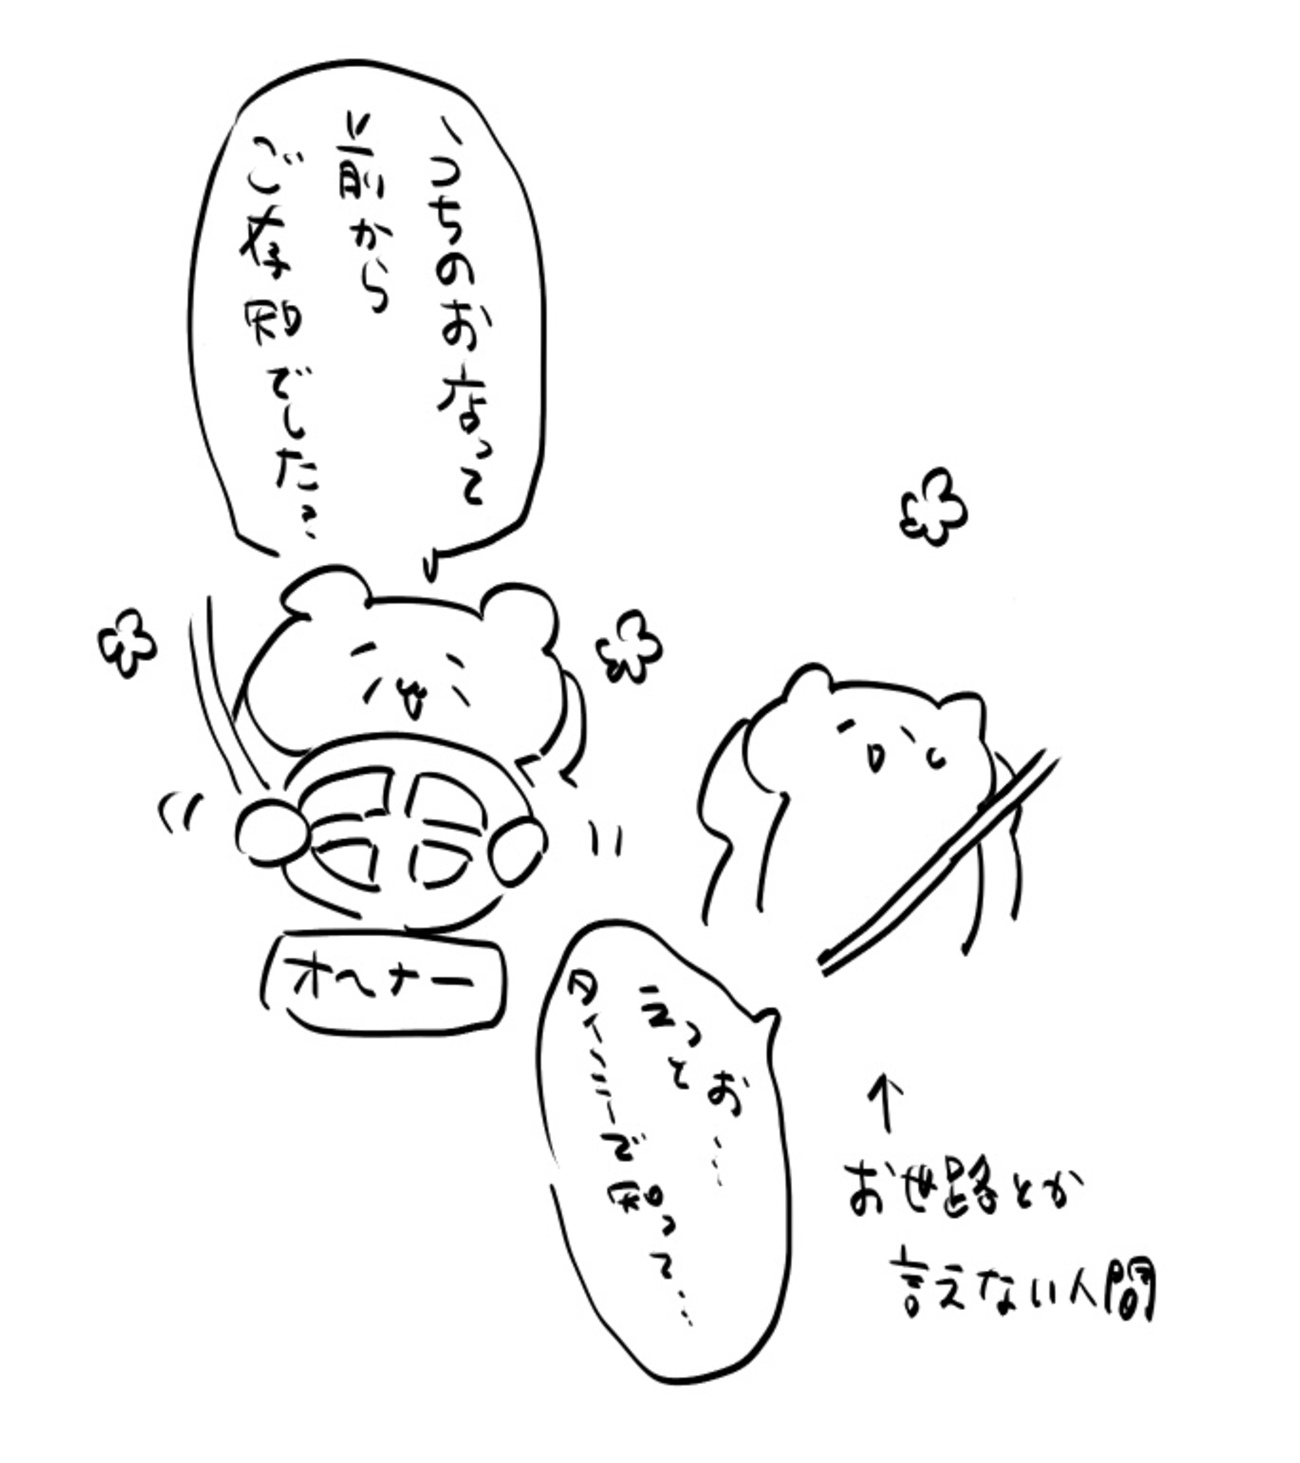 うちのお店って
前から
ご存知でした?
オーナー
お……
えっと
タイミーで知って……
↑
お世路とか
言えない人間